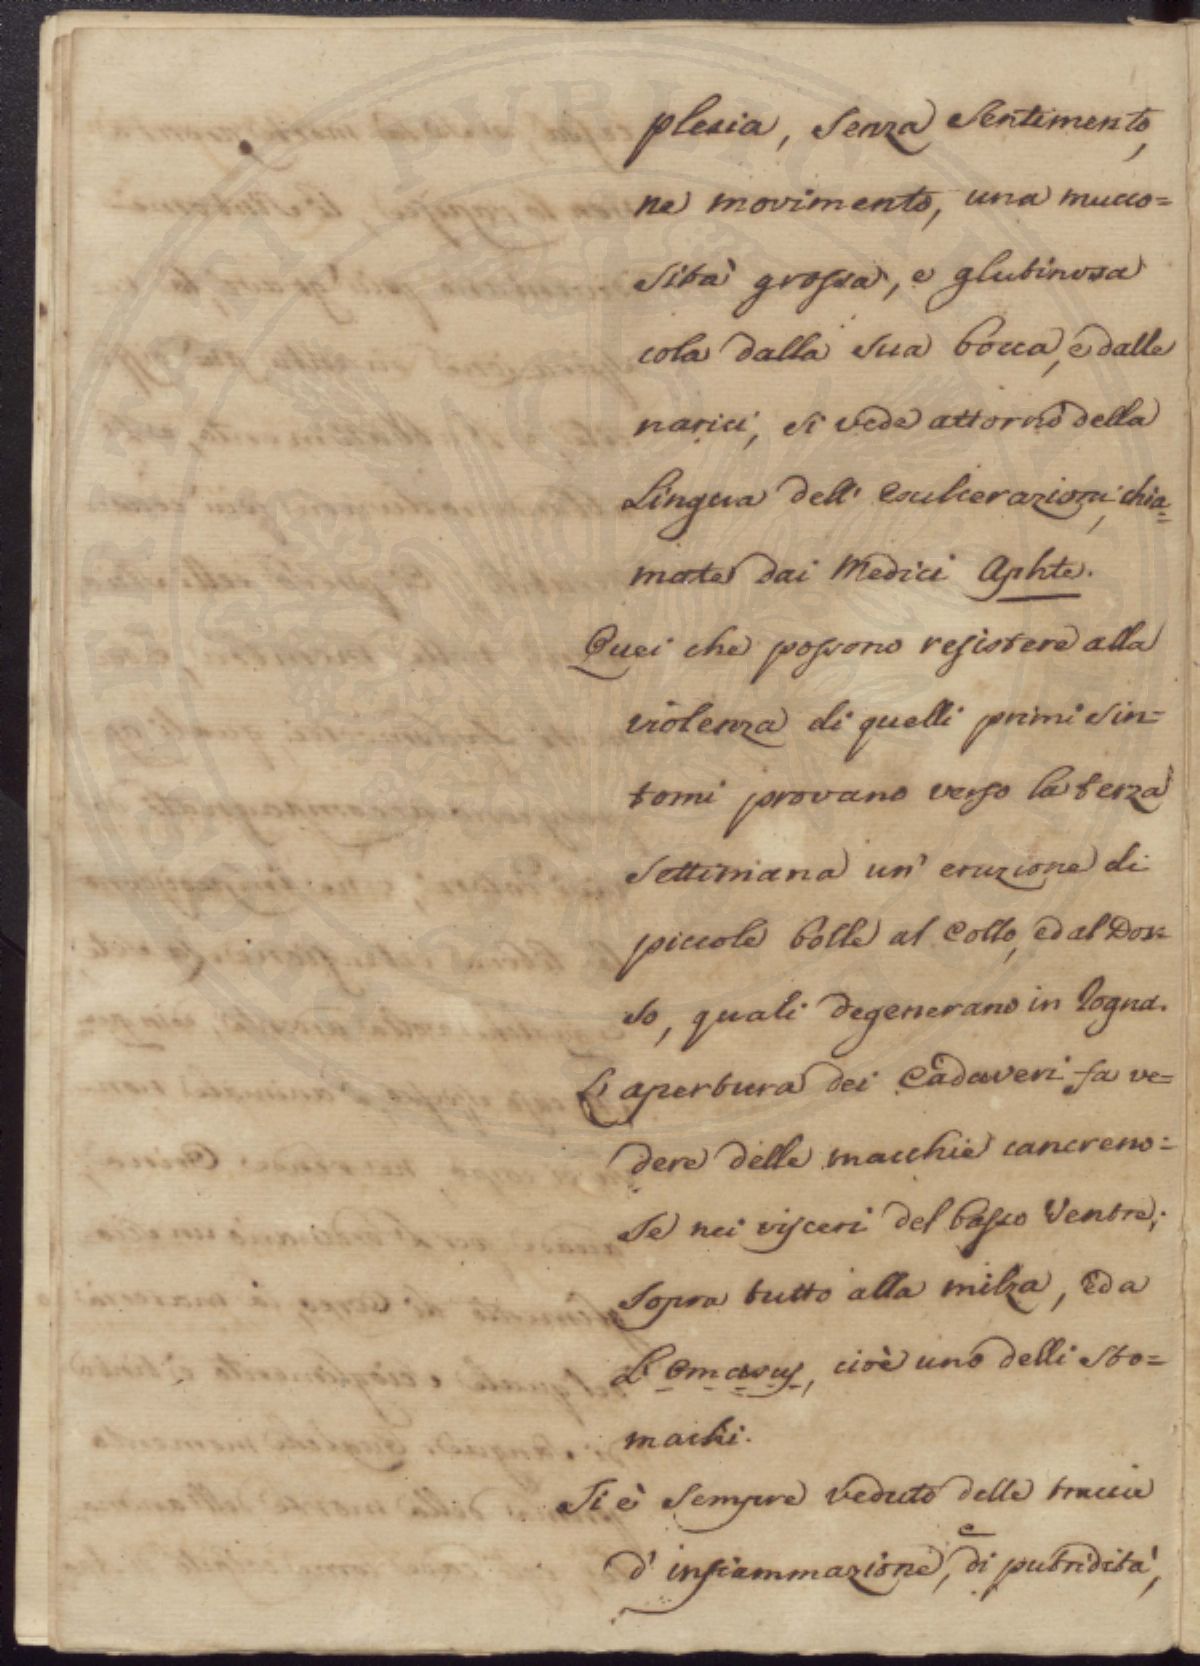 plesia, senza Sentimento,
ne movimento, una mucco=
sità grossa, e glutinosa
cola dalla sua bocca, e dalle
narici, si vede attorno della
Lingua dell' esulcerazioni, chia=
mate dai Medici Aphte.
Quei che possono resistere alla
violenza di quelli primi sin=
tomi provano verso la terza
settimana un' eruzione di
piccole bolle al Collo, ed al Dor=
so, quali degenerano in Rogna.
L' apertura dei Cadaveri fa ve=
dere delle macchie cancreno=
se nei visceri del basso Ventre;
sopra tutto alla milza, ed a
L' Omasus, cioè uno delli sto=
machi.
Si è sempre veduto delle traccie
d' infiammazione, e di putridità,